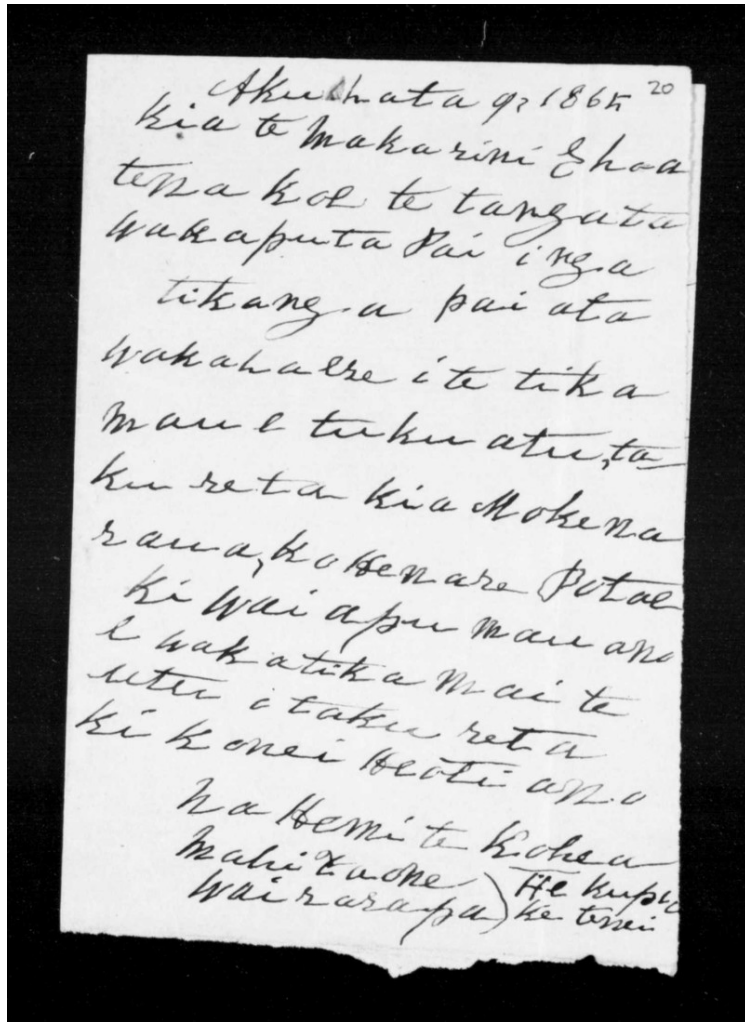 20
Akuhata 9, 1865
Kia te Makarini E hoa
tena koe te tangata
wakaputa Pai i nga
tikanga pai ata
wakahaere i te tika
mau e tuku atu, ta
ku reta kia Mokena
raua, ko Henare Potae
ki Waiapu mau ano
e wakatika mai te
utu o taku reta
ki konei Heoti ano
na Hemi te
Mahitaone
Wairarapa) He kupu
ke tenei